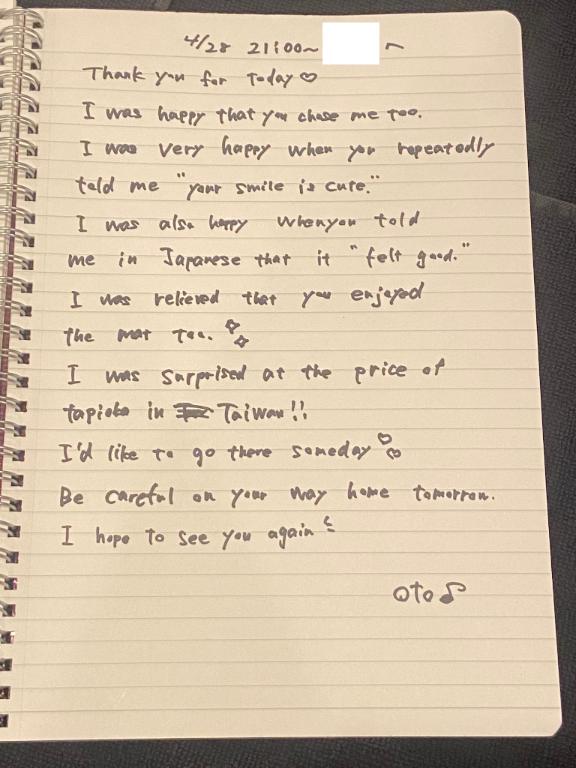 4/28 21:00~ へ
Thank you for today♡
I was happy that you chose me too.
I was very happy when you repeatedly
told me "your smile is cute."
I was also happy when you told
me in Japanese that it "felt good."
I was relieved that you enjoyed
the mat too.
I was surprised at the price of
tapioka in Taiwan!!
I'd like to go there someday♡
Be careful on your way home tomorrow.
I hope to see you again
oto♪